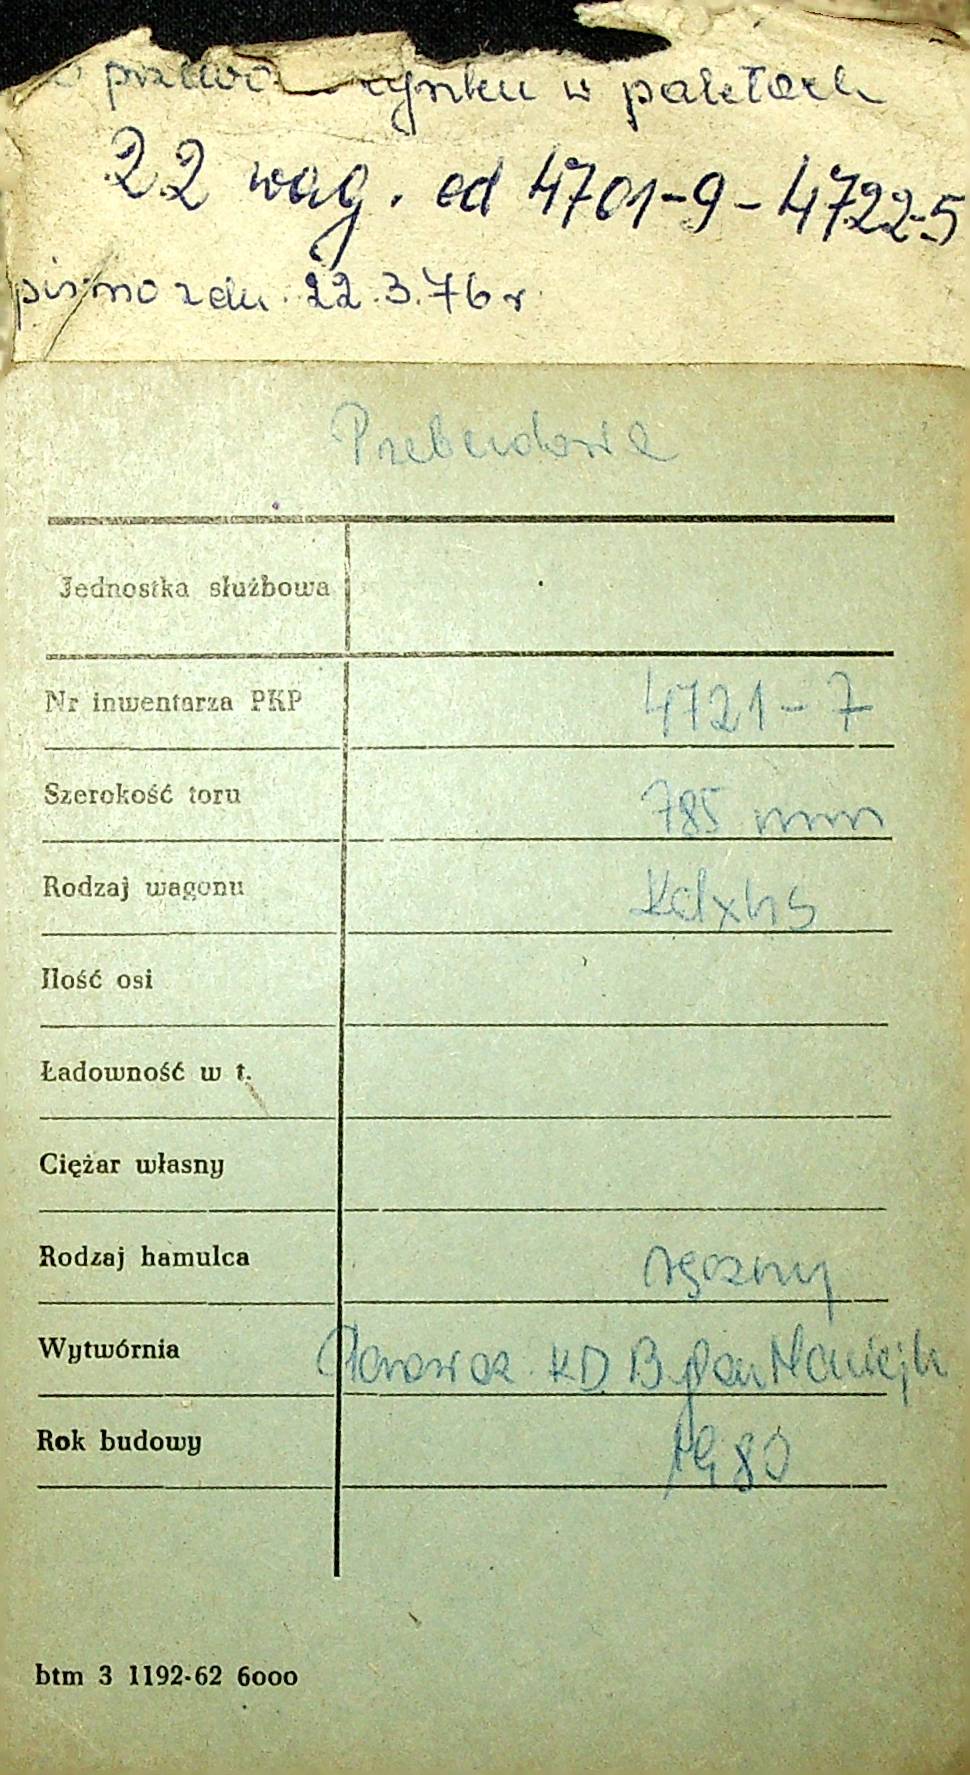 cynku w paletach
22 wag. od 4701-9 - 4722-5
pismo z dn. 22.3.76 r
Przebudowa
Jednostka służbowa
Nr inwentarza PKP 4721-7
Szerokość toru 785 mm
Rodzaj wagonu Kdxhs
Ilość osi
Ładowność w t.
Ciężar własny
Rodzaj hamulca ręczny
Wytwórnia KD Bytom
Rok budowy 1980
btm 3 1192-62 6000